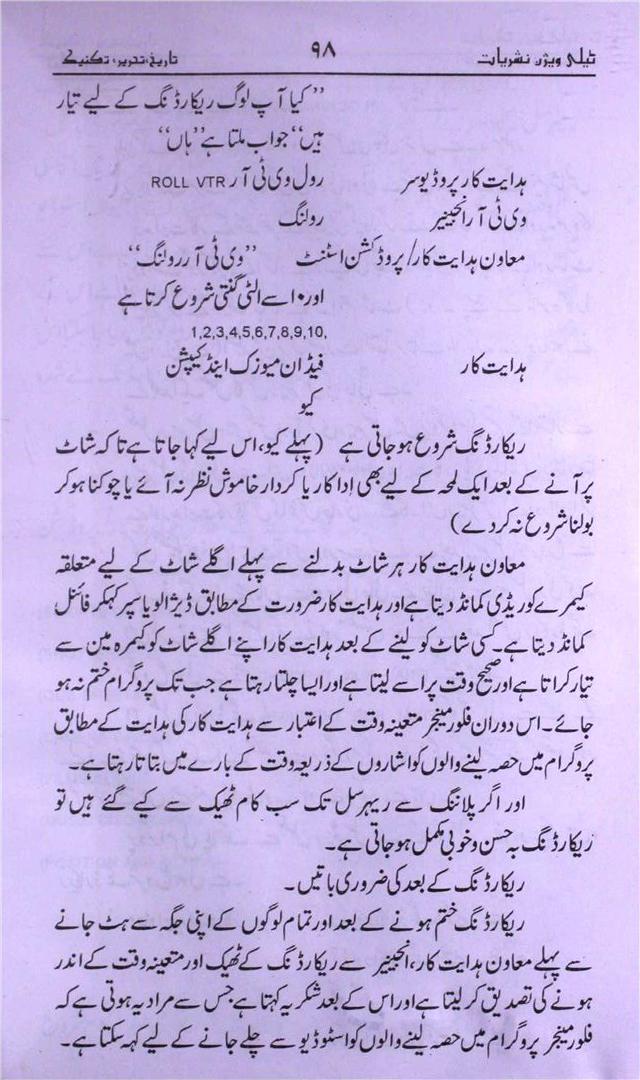 ٹیلی ویژن نشریات ۹۸ تاریخ، تحریر، تکنیک
”کیا آپ لوگ ریکارڈنگ کے لیے تیار
ہیں“ جواب ملتا ہے ”ہاں“
ہدایت کار پروڈیوسر رول وی ٹی آر ROLL VTR
وی ٹی آر انجینیر رولنگ
معاون ہدایت کار/ پروڈکشن اسٹنٹ ”وی ٹی آر رولنگ“
اور ۱۰ سے الٹی گنتی شروع کرتا ہے
1,2,3,4,5,6,7,8,9,10,
ہدایت کار فیڈان میوزک اینڈ کیپشن
کیو
ریکارڈنگ شروع ہو جاتی ہے (پہلے کیو، اس لیے کہا جاتا ہے تاکہ شاٹ
پر آنے کے بعد ایک لمحہ کے لیے بھی اداکار یا کردار خاموش نظر نہ آئے یا چوکنا ہو کر
بولنا شروع نہ کر دے)
معاون ہدایت کار ہر شاٹ بدلنے سے پہلے اگلے شاٹ کے لیے متعلقہ
کیمرے کو ریڈی کمانڈ دیتا ہے اور ہدایت کار ضرورت کے مطابق ڈیزالو یا سپر کہکر فائنل
کمانڈ دیتا ہے۔ کسی شاٹ کو لینے کے بعد ہدایت کار اپنے اگلے شاٹ کو کیمرہ مین سے
تیار کراتا ہے اور صحیح وقت پر اسے لیتا ہے اور ایسا چلتا رہتا ہے جب تک پروگرام ختم نہ ہو
جائے۔ اس دوران فلور منیجر متعینہ وقت کے اعتبار سے ہدایت کار کی ہدایت کے مطابق
پروگرام میں حصہ لینے والوں کو اشاروں کے ذریعہ وقت کے بارے میں بتاتا رہتا ہے۔
اور اگر پلاننگ سے ریہرسل تک سب کام ٹھیک سے کیے گئے ہیں تو
ریکارڈنگ بہ حسن و خوبی مکمل ہو جاتی ہے۔
ریکارڈنگ کے بعد کی ضروری باتیں۔
ریکارڈنگ ختم ہونے کے بعد اور تمام لوگوں کے اپنی جگہ سے ہٹ جانے
سے پہلے معاون ہدایت کار، انجینیر سے ریکارڈنگ کے ٹھیک اور متعینہ وقت کے اندر
ہونے کی تصدیق کر لیتا ہے اور اس کے بعد شکریہ کہتا ہے جس سے مراد یہ ہوتی ہے کہ
فلور منیجر پروگرام میں حصہ لینے والوں کو اسٹوڈیو سے چلے جانے کے لیے کہہ سکتا ہے۔